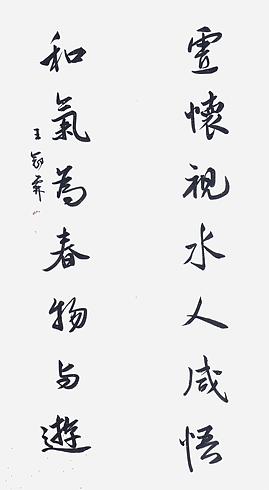 虛懷視水人咸悟
和氣為春物与遊
王